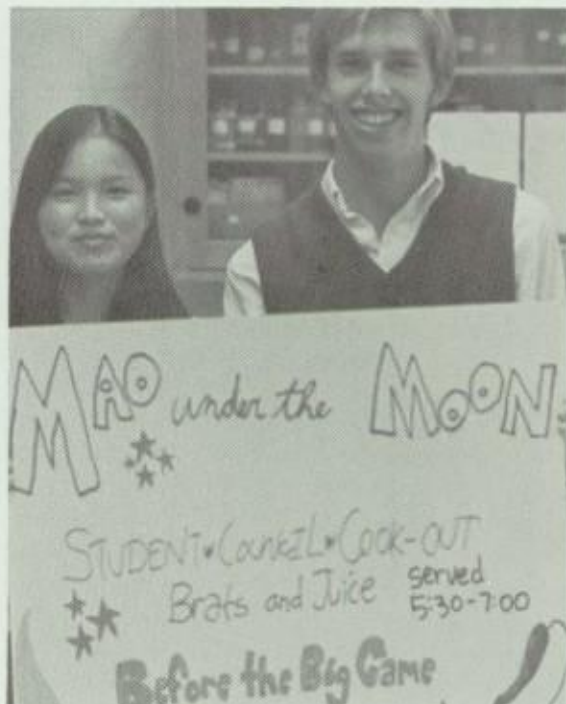 MAO under the MOON
STUDENT • COUNCIL • COOK-OUT
Brats and Juice served
5:30-7:00
Before the Big Game